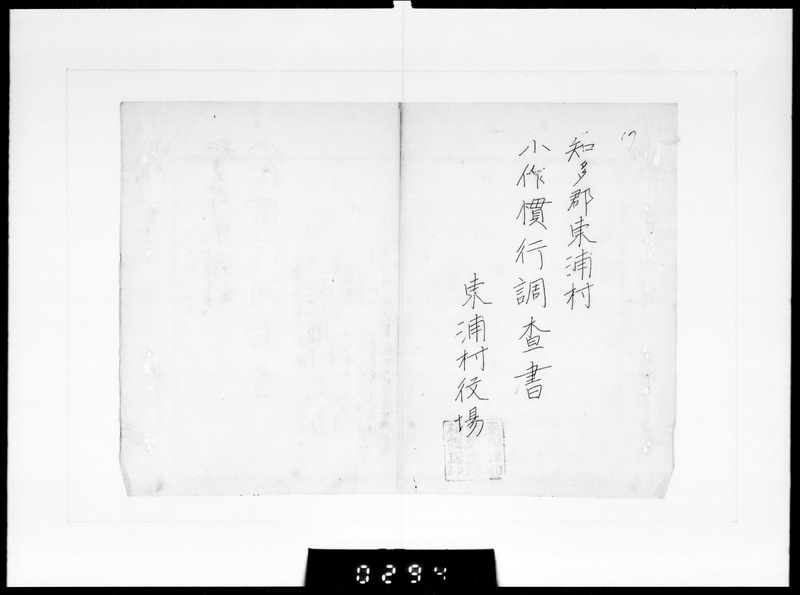 知多郡東浦村
小作慣行調査書
東浦村役場
0294